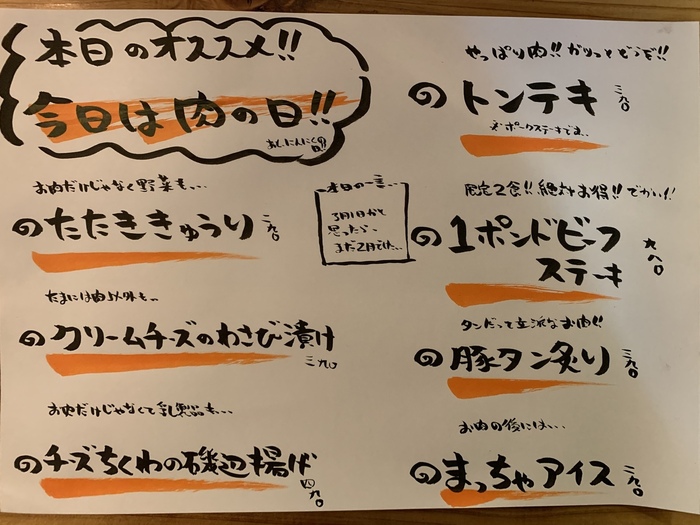 本日のオススメ!!
今日は肉の日!!
あし、にんにくの日!!
お肉だけじゃなく野菜も...
のたたききゅうり 二九〇
たまには肉以外も..
のクリームチーズのわさび漬け
三九〇
お肉だけじゃなくて乳製品も...
のチーズちくわの磯辺揚げ
四九〇
本日の一言...
3月1日かと
思ったら、
まだ2月でした...
やっぱり肉!!がりっとどうぞ!!
のトンテキ 三九〇
※ポークステーキです..
限定2食!!絶対お得!!でかい!!
の1ポンドビーフ
ステーキ
九八〇
タンだって立派なお肉!!
の豚タン炙り 三九〇
お肉の後には...
のまっちゃアイス 二九〇